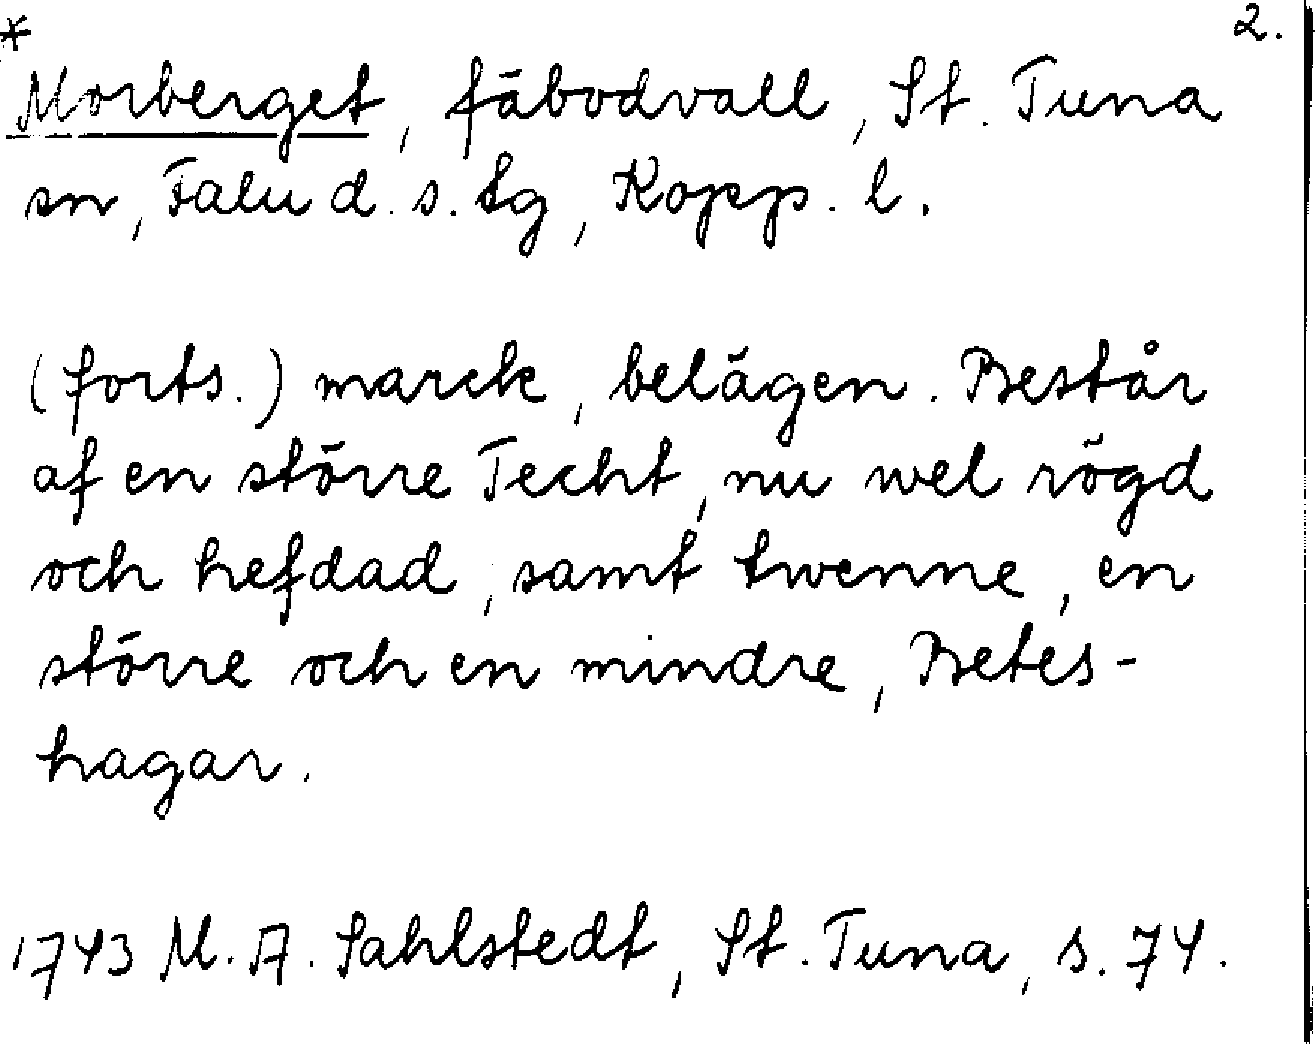 * 2.
Morberget, fäbodvall, St. Tuna
sn, Falu d. s. tg, Kopp. l.
(forts.) marck, belägen. Består
af en större Techt, nu wel rögd
och hefdad, samt twenne, en
större och en mindre, Betes-
hagar.
1743 M. A. Sahlstedt, St. Tuna, s. 74.